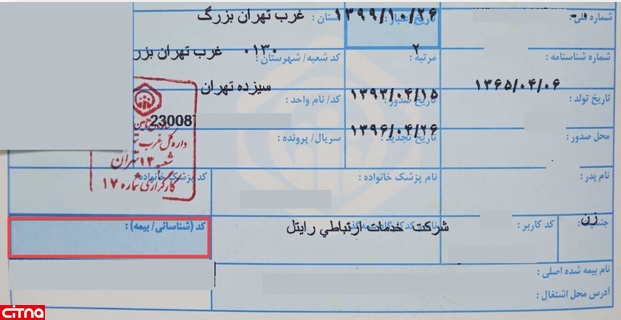 شماره ملی: تاریخ اعتبار: ۱۳۹۹/۱۰/۲۶ استان: غرب تهران بزرگ
شماره شناسنامه: مرتبه: ۲ کد شعبه/ شهرستان: ۰۱۳۰ غرب تهران بزر
تاریخ تولد: ۱۳۶۵/۰۴/۰۶ تاریخ صدور: ۱۳۹۳/۰۴/۱۵ کد/ نام واحد: سیزده تهران
محل صدور: تاریخ تجدید: ۱۳۹۶/۰۴/۲۶ سریال/ پرونده:
23008
داره کل غرب
شعبه ۱۳ تهران
کارگزاری شماره ۱۷
نام پدر: نام پزشک خانواده: کد پزشک خانواده:
جنسیت: زن کد کاربر: شرکت خدمات ارتباطي رايتل کد (شناسائی/ بیمه):
نام بیمه شده اصلی:
آدرس محل اشتغال:
citna